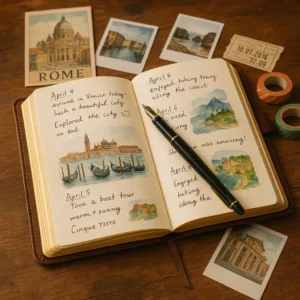 ROME
10.07.2016
April 4
Arrived in Venice today!
Such a beautiful city.
Explored the city
April 5
Took a boat tour
warm + sunny
Cinque Terre
April 6
Enjoyed hiking
along the coast.
April 6
was amazing!
April
Enjoyed
hiking
along the